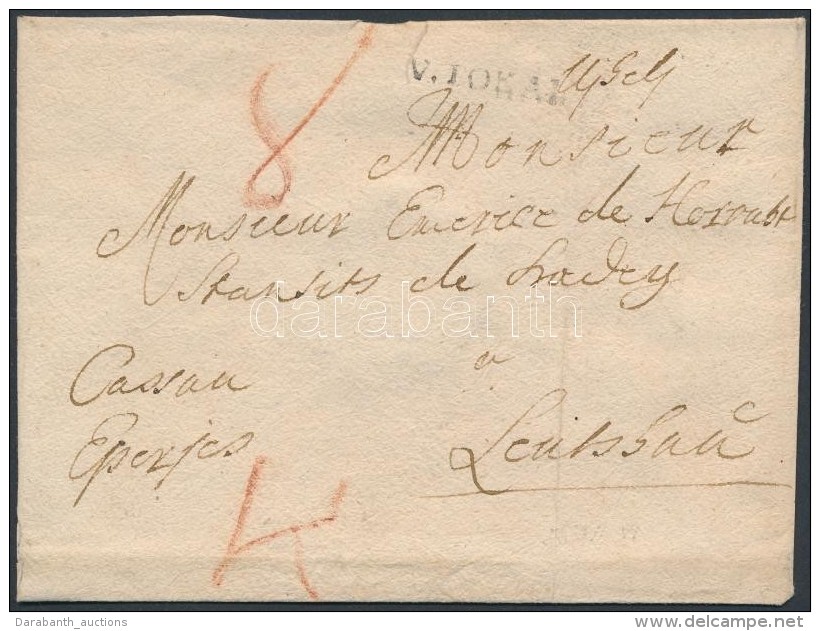 8
V. TOKAI
Monsieur
Monsieur Emeric de Horvath
Stansits de Gradey
darabanth
Cassau
a
Eperjes
Leutshau
4
Darabanth_auctions
www.delcampe.net